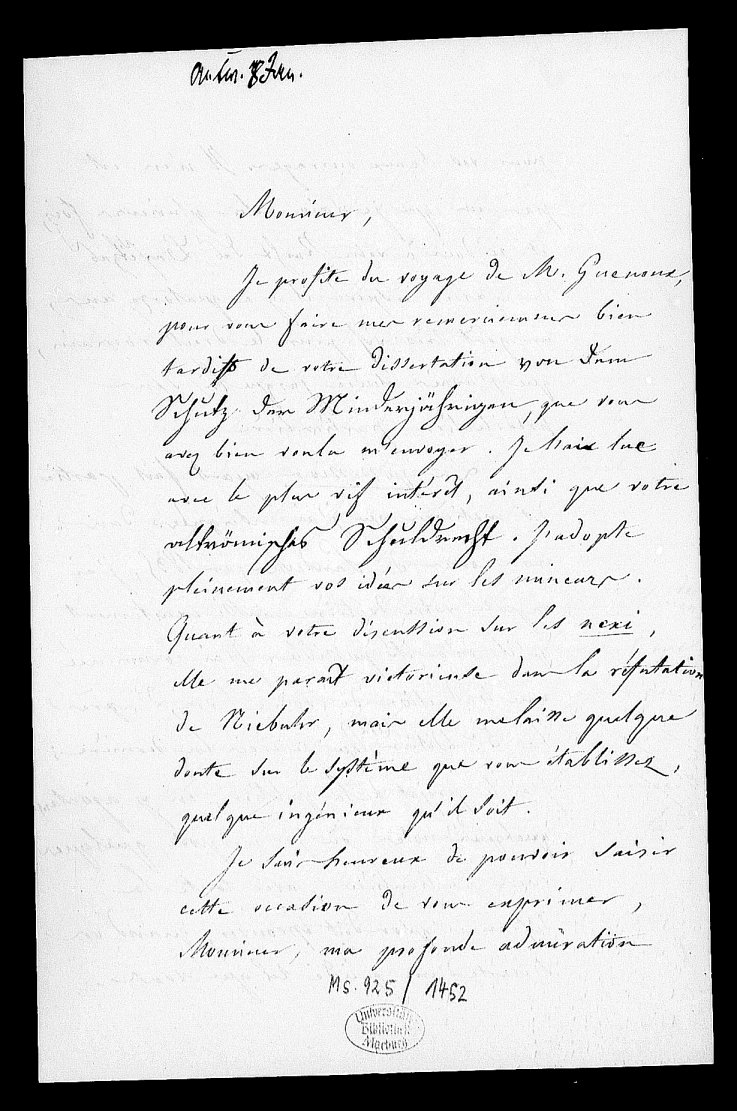 Monsieur,
Je profite du voyage de M. Guenoux,
pour vous faire mes remerciemens bien
tardifs de votre Dissertation von Dem
Schutz der Minderjährigen, que vous
avez bien voulu m'envoyer. Je l'ai lue
avec le plus vif intérêt, ainsi que votre
altrömisches Schuldrecht. J'adopte
pleinement vos idées sur les mineurs.
Quant à votre discussion sur les nexi,
elle me paraît victorieuse dans la réfutation
de Niebuhr, mais elle me laisse quelque
doute sur le système que vous établissez,
quelque ingénieux qu'il soit.
Je suis heureux de pouvoir saisir
cette occasion de vous exprimer,
Monsieur, ma profonde admiration
Ms. 925/1452
Universitäts
Bibliothek
Marburg